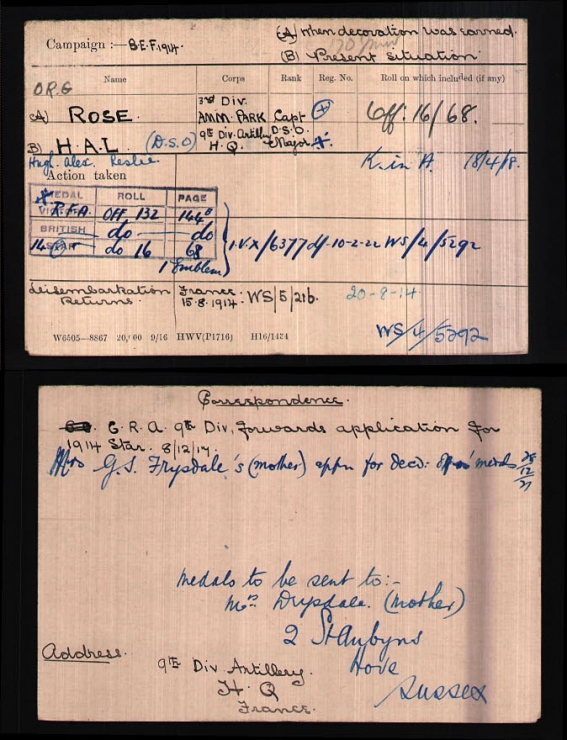 Campaign :— B.E.F. 1914.
(A) When decoration was earned.
(B) Present situation
Name Corps Rank Reg. No. Roll on which included (if any)
(A) ROSE.
3rd Div.
AMM. PARK Capt
Off. 16/68.
B) H.A.L. (D.S.O)
9th Div. Artillery D.S.O.
H.Q. Major
Hugh. Alex. Leslie
K. in A. 18/4/18.
Action taken
MEDAL ROLL PAGE
VICTORY R.F.A. OFF. 132 144
BRITISH do do
14 STAR do 16 68
1 Emblem
I.V.X/6377 d/- 10-2-22 WS/4/5292
Disembarkation
Returns.
France:
15.8.1914:
WS/5/216.
20-8-14
WS/4/5292
W6505—8867 20,000 9/16 HWV(P1716) H16/1434
Correspondence.
C.R.A. 9th Div. forwards application for
1914 Star. 8/12/17.
Mrs G.S. Frysdale's (mother) appn for decd: Off's medls 28/12/21
Medals to be sent to:-
Mrs Drysdale. (mother)
2 St Aubyns
Hove
Sussex
Address.
9th Div. Artillery.
H.Q
France.